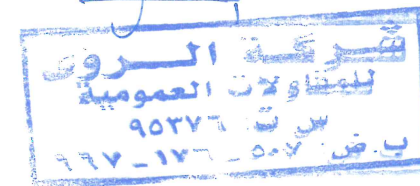 شركة الروى
للمقاولات العمومية
س ت ٩٥٣٧٦
ب.ض ٥٠٧ - ١٧٦ - ٦٦٧